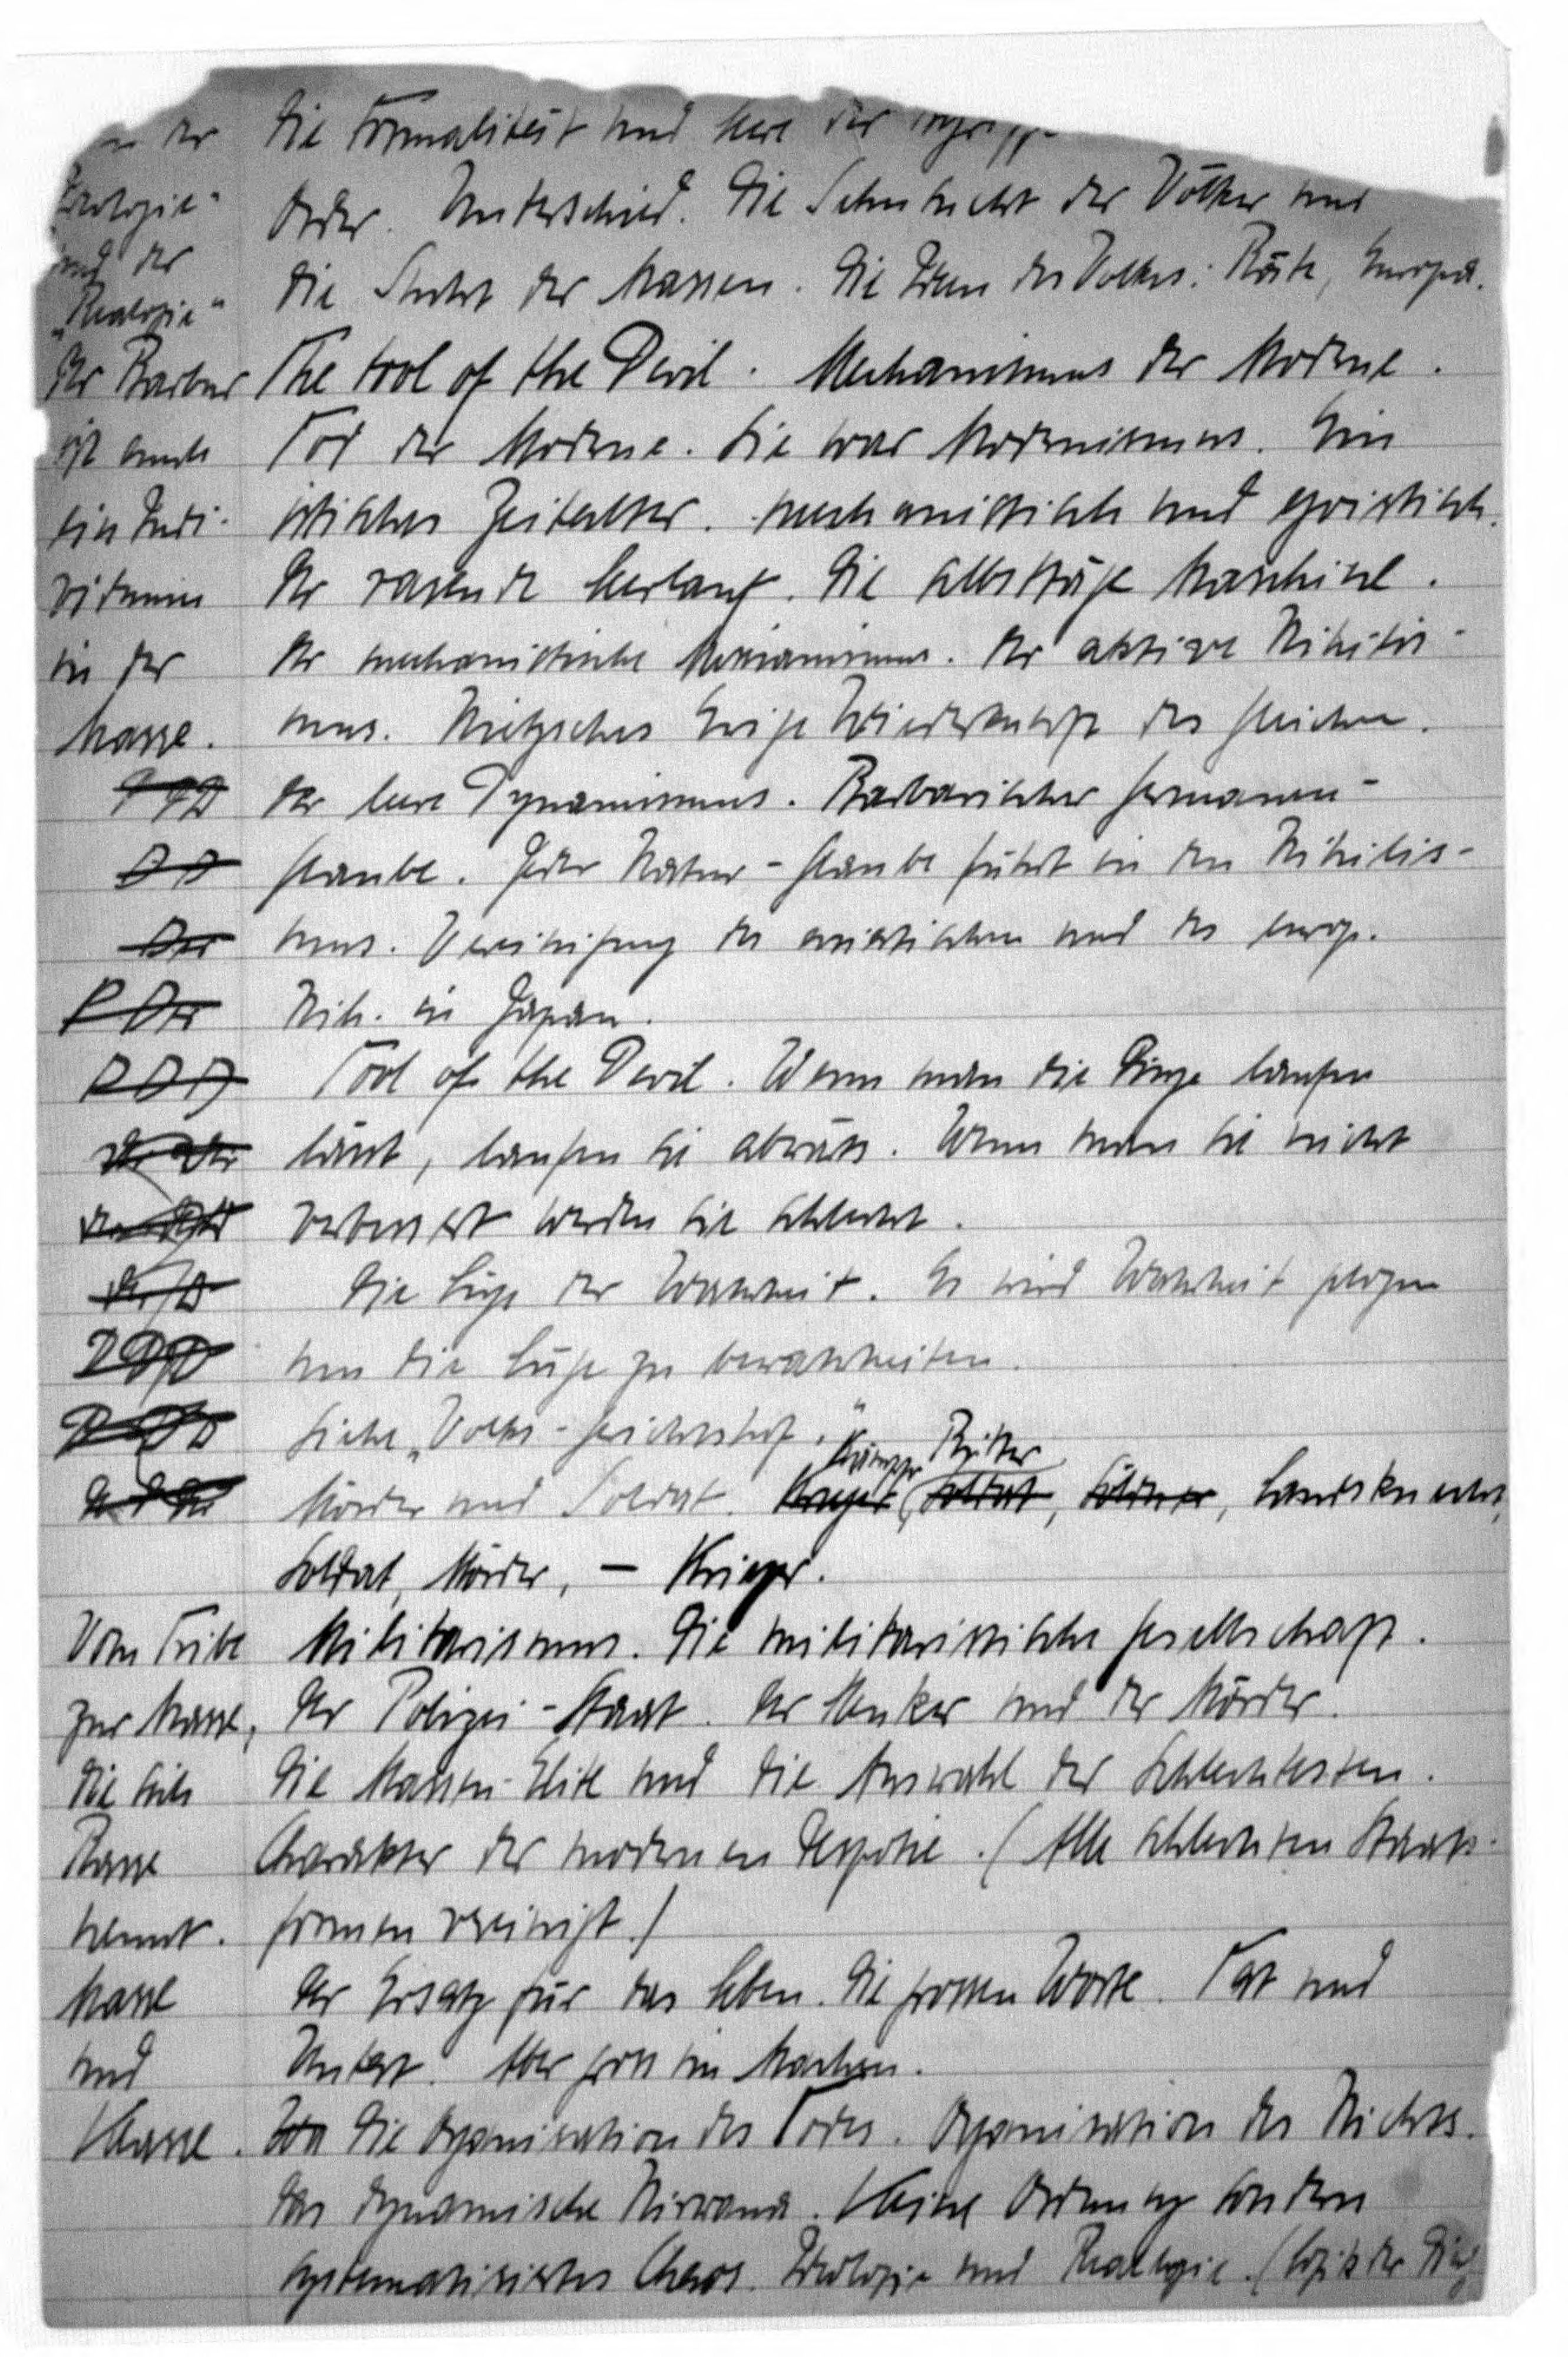 der Die Formalität und Leere der
"Ideologie"
Order. Unterschied. Die Sehnsucht der Völker und
und der
die Sucht der Massen. Die Ideen des Volkes: Räte, Europa.
"Realogie"
Der Barbar The tool of the Devil. Mechanismus der Moderne.
ist heute Tod der Moderne. Sie war Modernismus. Ein
ein Indi- istisches Zeitalter. mechanistisch und egoistisch.
viduum Der rasende Leerlauf. Die selbsttätige Maschine.
in der Der mechanistische Messianismus. Der aktive Nihilis-
Masse. mus. Nietzsches Ewige Wiederkunft des Gleichen.
Der leere Dynamismus. Barbarischer Germanen-
Glaube. Jeder Natur-Glaube führt in den Nihilis-
mus. Vereinigung des asiatischen und des europ.
Nih. in Japan.
Tool of the Devil. Wenn man die Dinge laufen
lässt, laufen sie abwärts. Wenn man sie nicht
verbessert werden sie schlecht.
Die Lüge der Wahrheit. Es wird Wahrheit gelogen
um die Lüge zu bewahrheiten.
Siehe "Volks-Gerichtshof."
Kämpfer Ritter
Mörder und Soldat. Krieger, Soldat, Söldner, Landsknecht,
Soldat, Mörder, – Krieger.
Vom Tribe Militarismus. Die militaristische Gesellschaft.
zur Masse, Der Polizei-Staat. Der Henker und der Mörder.
die sich Die Massen-Elite und die Auswahl der Schlechtesten.
Rasse Charakter der modernen Despotie. (Alle schlechten Staats-
nennt. formen vereinigt.)
Masse Der Ersatz für das Leben. Die grossen Worte. Tat und
und Untat. Aber gross im Machen.
Klasse. Die Organisation des Todes. Organisation des Nichts.
Das dynamische Nirwana. Keine Ordnung sondern
systematisiertes Chaos. Ideologie und Realogie. (Logik der Ding